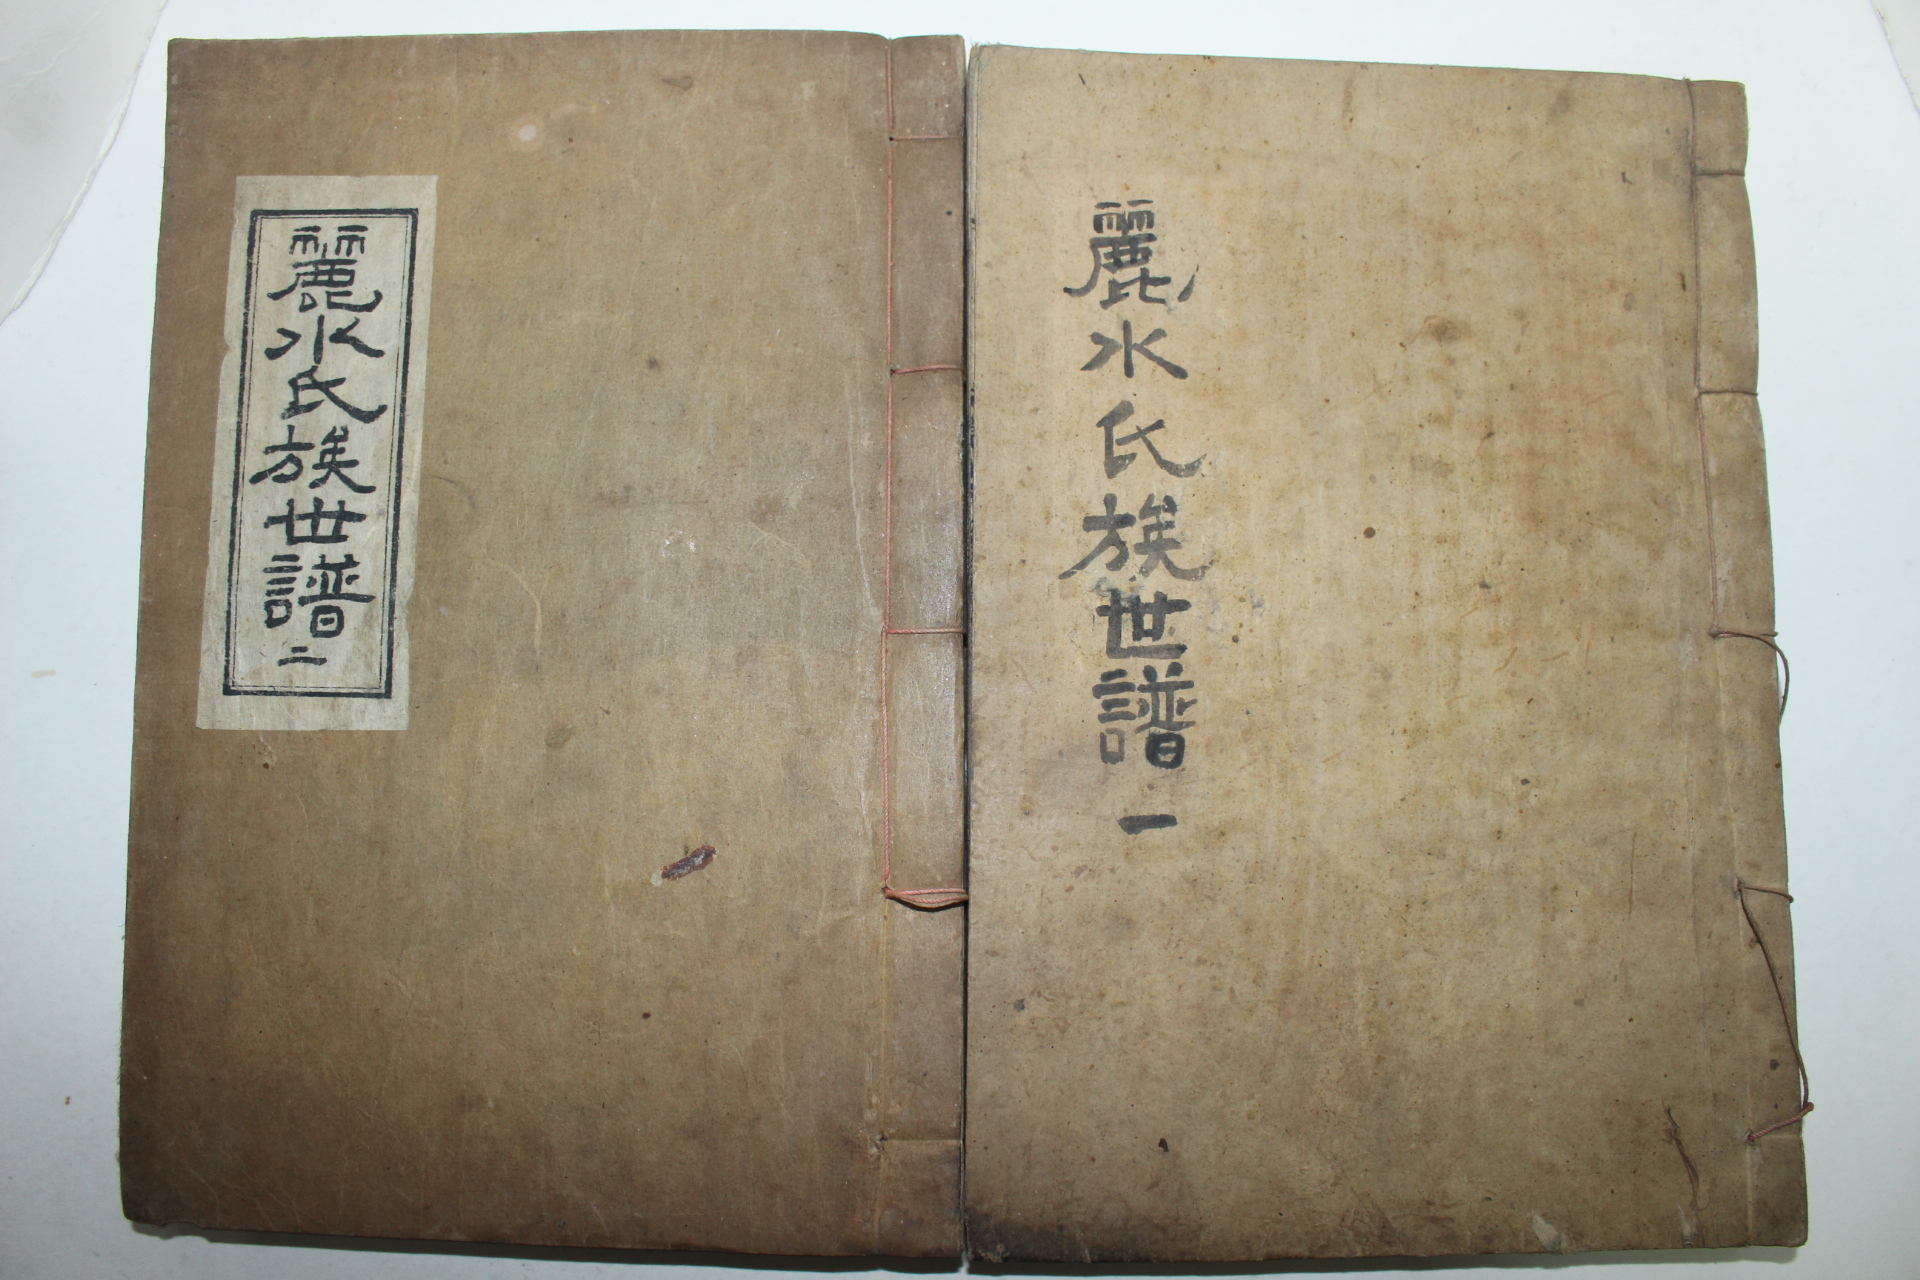 麗水氏族世譜一
麗水氏族世譜二